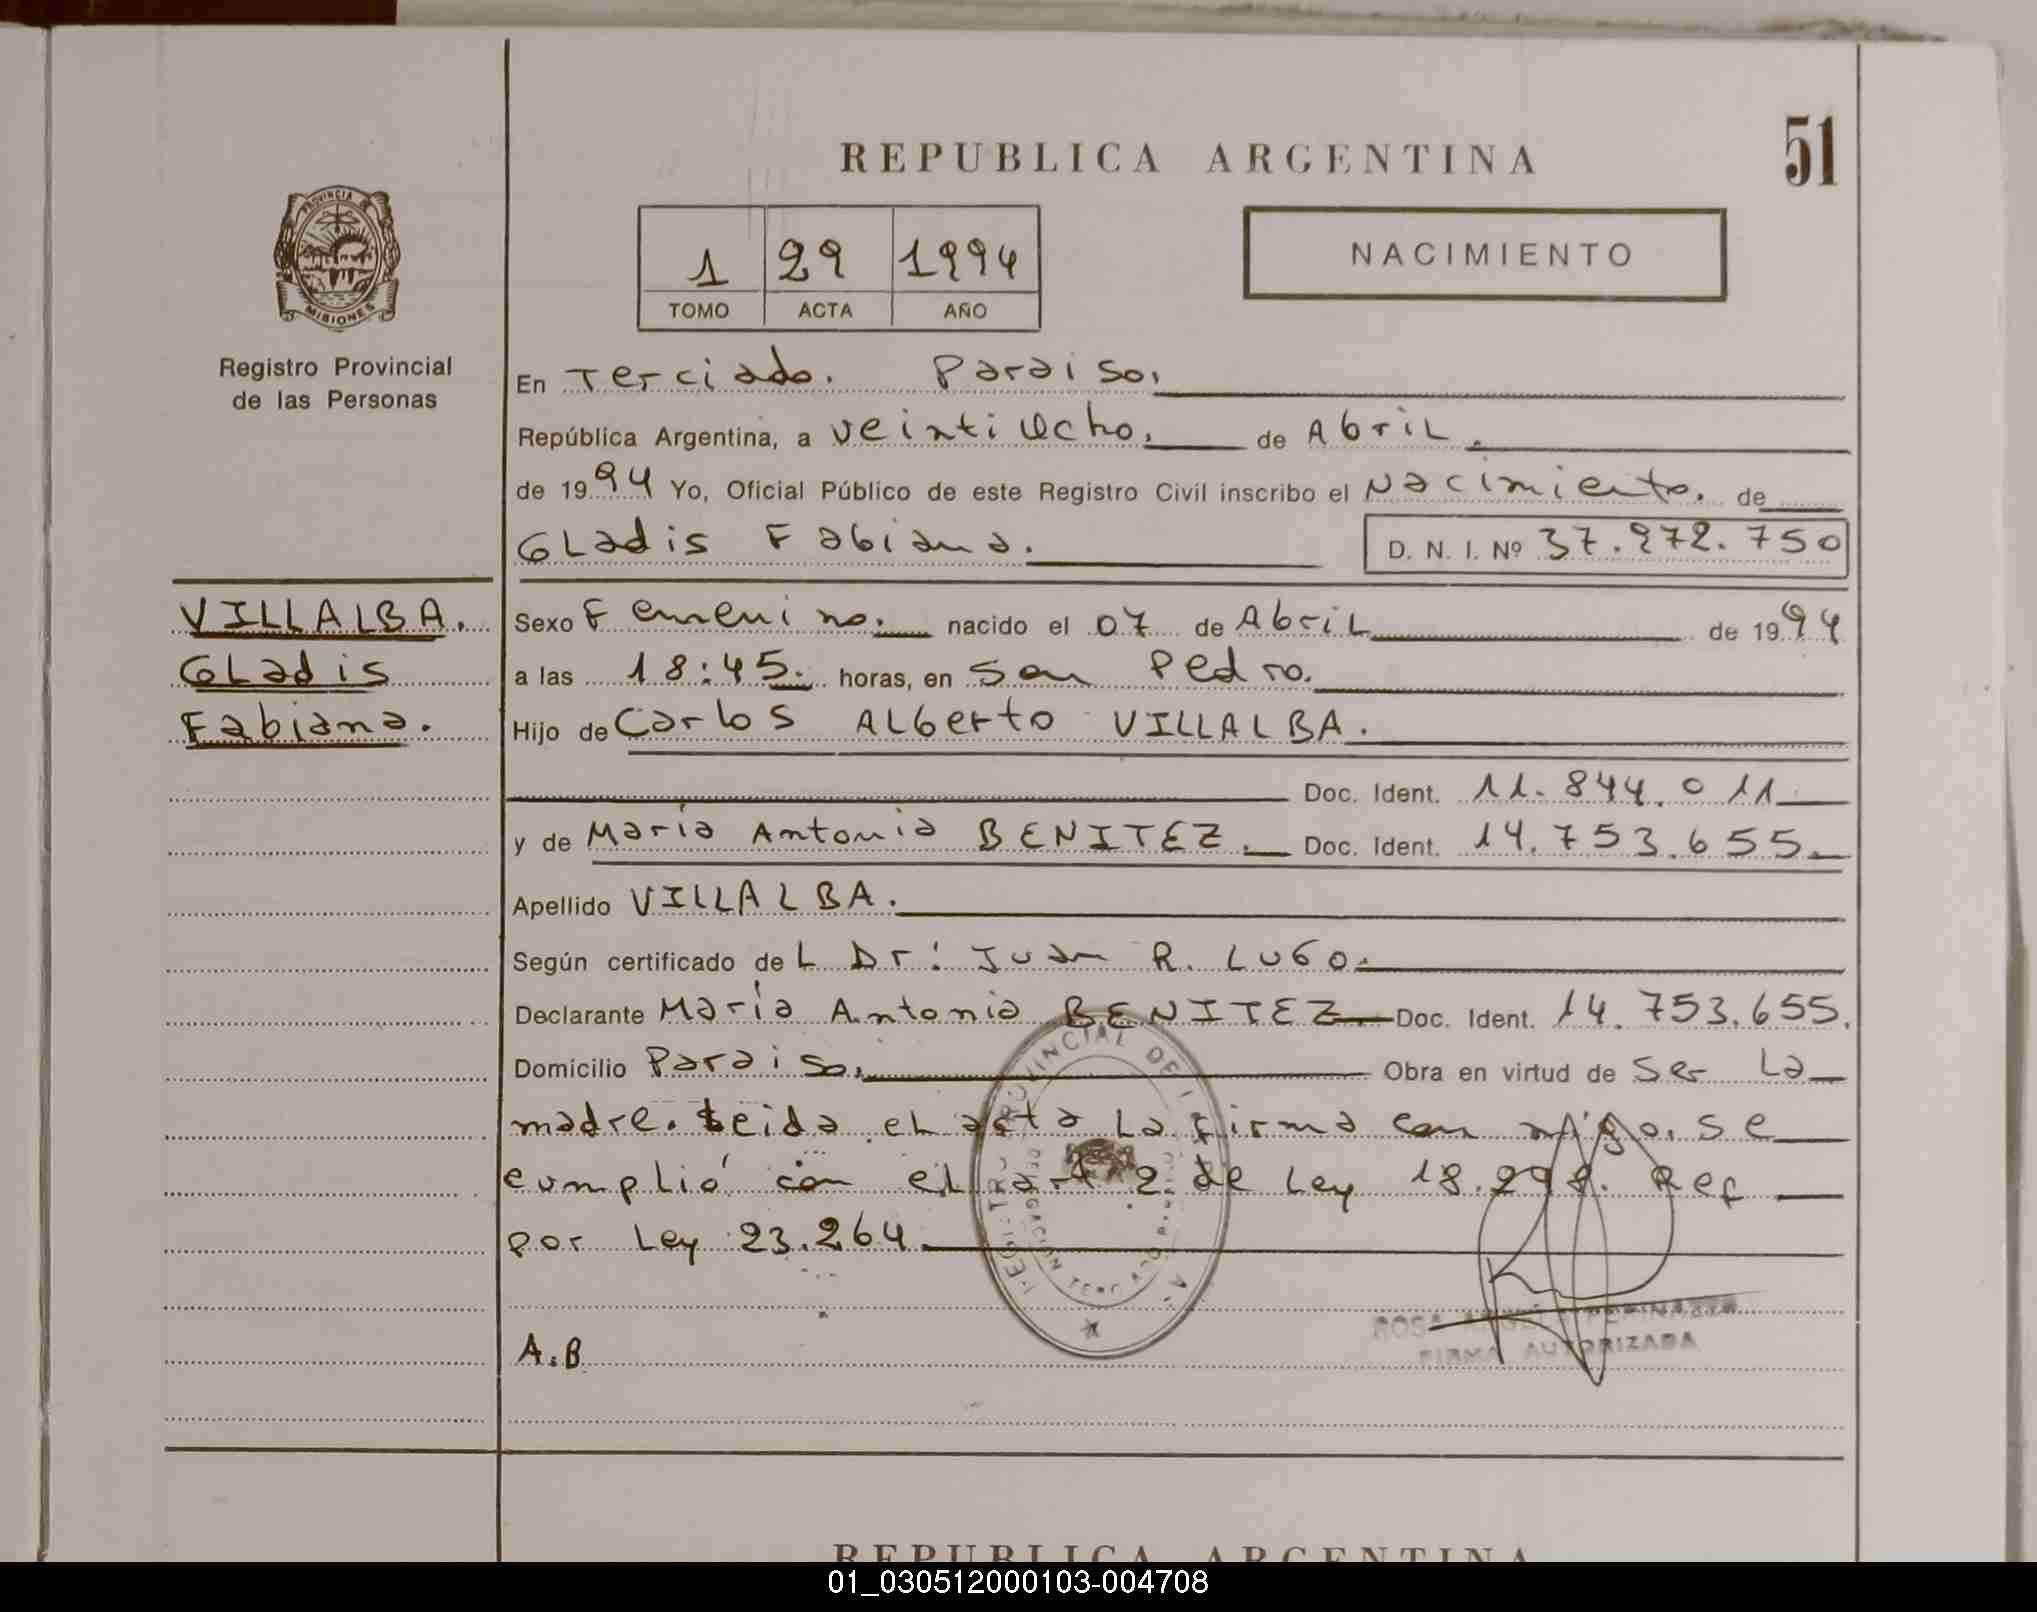 REPUBLICA ARGENTINA
51
PROVINCIA DE
MISIONES
Registro Provincial
de las Personas
1 29 1994
TOMO ACTA AÑO
NACIMIENTO
En Terciado. Paraiso.
República Argentina, a veintiocho. de Abril.
de 1994 Yo, Oficial Público de este Registro Civil inscribo el Nacimiento. de
Gladis Fabiana. D. N. I. Nº 37.972.750
VILLALBA.
Gladis
Fabiana.
Sexo Femenino. nacido el 07 de Abril de 1994
a las 18:45. horas, en San Pedro.
Hijo de Carlos Alberto VILLALBA.
Doc. Ident. 11.844.011
y de María Antonia BENITEZ. Doc. Ident. 14.753.655.
Apellido VILLALBA.
Según certificado del Dr: Juan R. Lugo.
Declarante María Antonia BENITEZ. Doc. Ident. 14.753.655.
Domicilio Paraiso. Obra en virtud de Ser La
madre. Leida el acta La firma con migo. se
cumplió con el art 2 de Ley 18.298. Ref
por Ley 23.264.
ROSA
FIRMA AUTORIZADA
A.B
REPUBLICA ARGENTINA
01_030512000103-004708